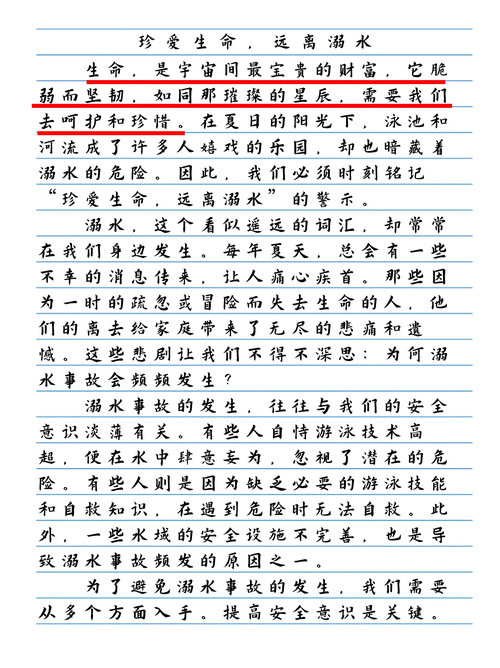 珍爱生命，远离溺水
生命，是宇宙间最宝贵的财富，它脆
弱而坚韧，如同那璀璨的星辰，需要我们
去呵护和珍惜。在夏日的阳光下，泳池和
河流成了许多人嬉戏的乐园，却也暗藏着
溺水的危险。因此，我们必须时刻铭记
“珍爱生命，远离溺水”的警示。
溺水，这个看似遥远的词汇，却常常
在我们身边发生。每年夏天，总会有一些
不幸的消息传来，让人痛心疾首。那些因
为一时的疏忽或冒险而失去生命的人，他
们的离去给家庭带来了无尽的悲痛和遗
憾。这些悲剧让我们不得不深思：为何溺
水事故会频频发生？
溺水事故的发生，往往与我们的安全
意识淡薄有关。有些人自恃游泳技术高
超，便在水中肆意妄为，忽视了潜在的危
险。有些人则是因为缺乏必要的游泳技能
和自救知识，在遇到危险时无法自救。此
外，一些水域的安全设施不完善，也是导
致溺水事故频发的原因之一。
为了避免溺水事故的发生，我们需要
从多个方面入手。提高安全意识是关键。